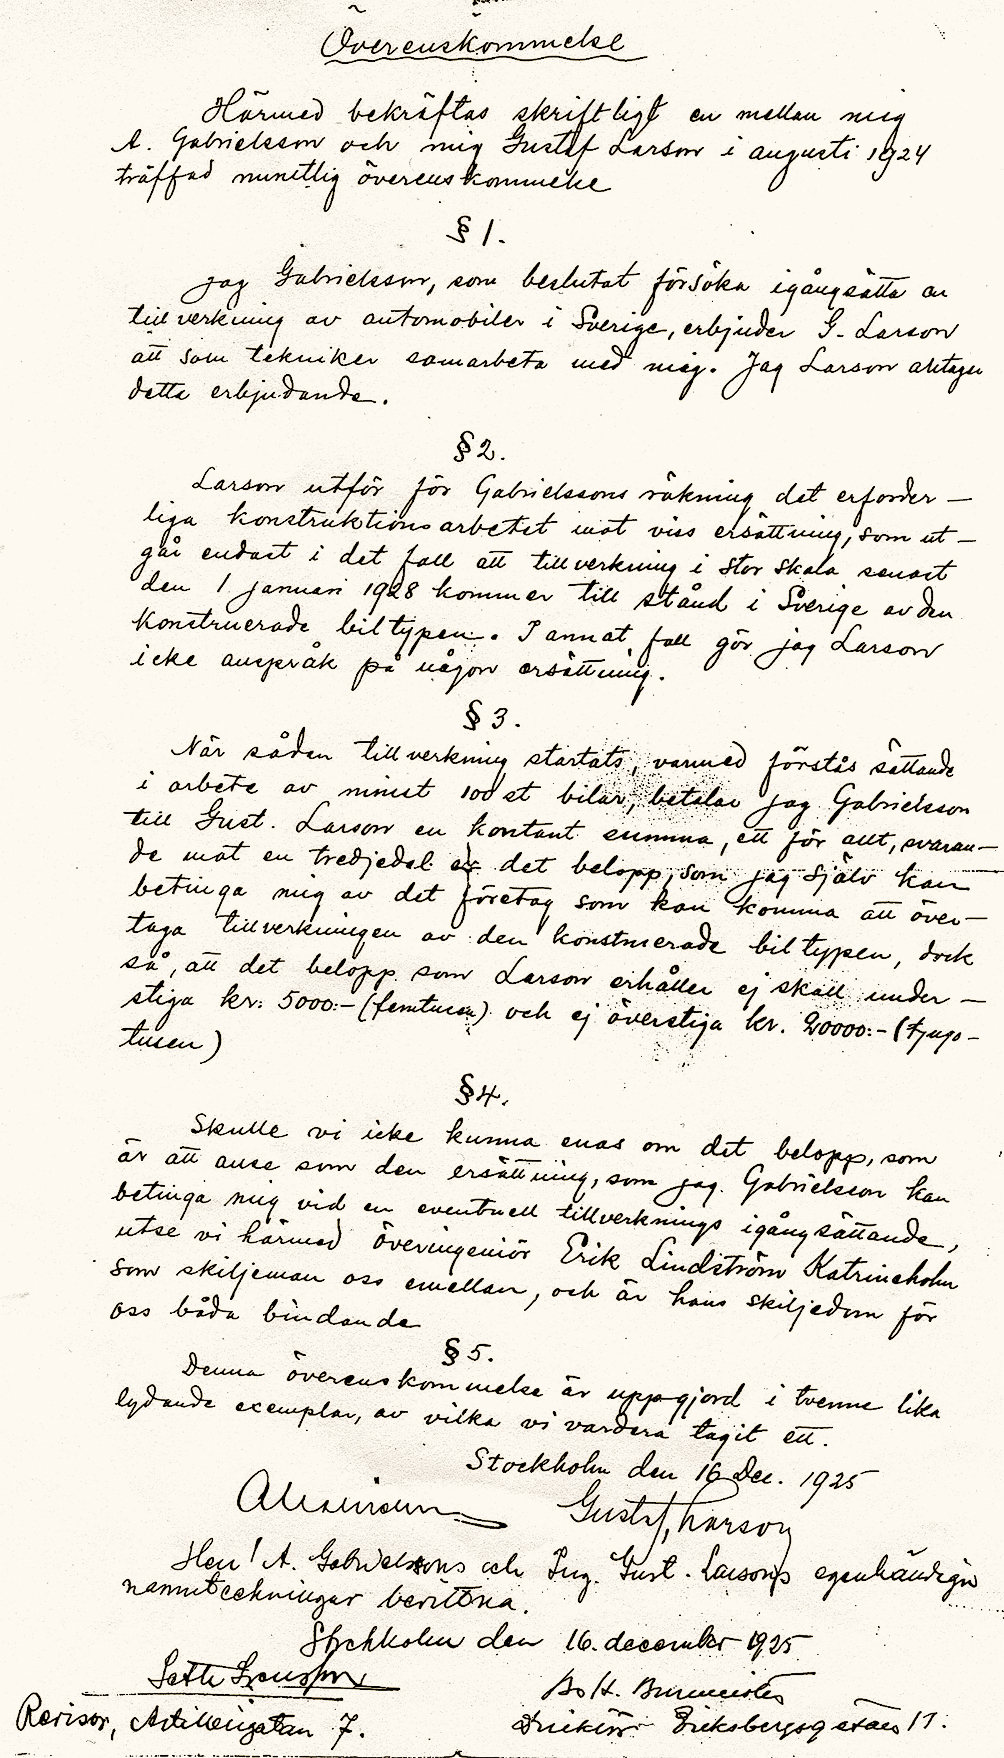 Överenskommelse
Härmed bekräftas skriftligt en mellan mig
A. Gabrielsson och mig Gustaf Larson i augusti 1924
träffad muntlig överenskommelse
§ 1.
Jag Gabrielsson, som beslutat försöka igångsätta en
tillverkning av automobiler i Sverige, erbjuder G. Larson
att som tekniker samarbeta med mig. Jag Larson antager
detta erbjudande.
§2.
Larson utför för Gabrielssons räkning det erforder-
liga konstruktionsarbetet mot viss ersättning, som ut-
går endast i det fall att tillverkning i stor skala senast
den 1 januari 1928 kommer till stånd i Sverige av den
konstruerade biltypen. I annat fall gör jag Larson
icke anspråk på någon ersättning.
§ 3.
När sådan tillverkning startats, varmed förstås sättande
i arbete av minst 100 st bilar, betalar jag Gabrielsson
till Gust. Larson en kontant summa, ett för allt, svaran-
de mot en tredjedel av det belopp, som jag själv kan
betinga mig av det företag som kan komma att över-
taga tillverkningen av den konstruerade biltypen, dock
så, att det belopp som Larson erhåller ej skall under-
stiga kr. 5000:- (femtusen) och ej överstiga kr. 20000:- (tjugo-
tusen)
§4.
Skulle vi icke kunna enas om det belopp, som
är att anse som den ersättning, som jag Gabrielsson kan
betinga mig vid en eventuell tillverknings igångsättande,
utse vi härmed överingeniör Erik Lindström Katrineholm
som skiljeman oss emellan, och är hans skiljedom för
oss båda bindande
§5.
Denna överenskommelse är uppgjord i tvenne lika
lydande exemplar, av vilka vi vardera tagit ett.
Stockholm den 16 Dec. 1925
Gustaf Larson
Herr A. Gabrielssons och Ing. Gust. Larsons egenhändiga
namnteckningar bevittna.
Stockholm den 16. december 1925
Revisor, Artillerigatan 7.
Direktör Eriksbergsgatan 11.